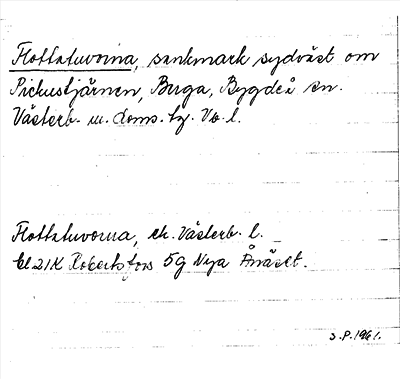 Flottatuvorna, sankmark sydväst om
Pickustjärnen, Buga, Bygdeå sn.
Västerb. m. doms. tg. Vb. l.
Flottatuvorna, ek. Västerb. l.
bl 21K Robertsfors 5g Nya Ånäset.
S.P. 1961.